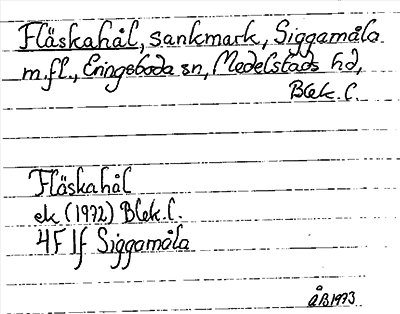 Fläskahål, sankmark, Siggamåla
m.fl., Eringsboda sn, Medelstads hd,
Blek. l.
Fläskahål
ek (1972) Blek. l.
4F 1f Siggamåla
ÅB 1973